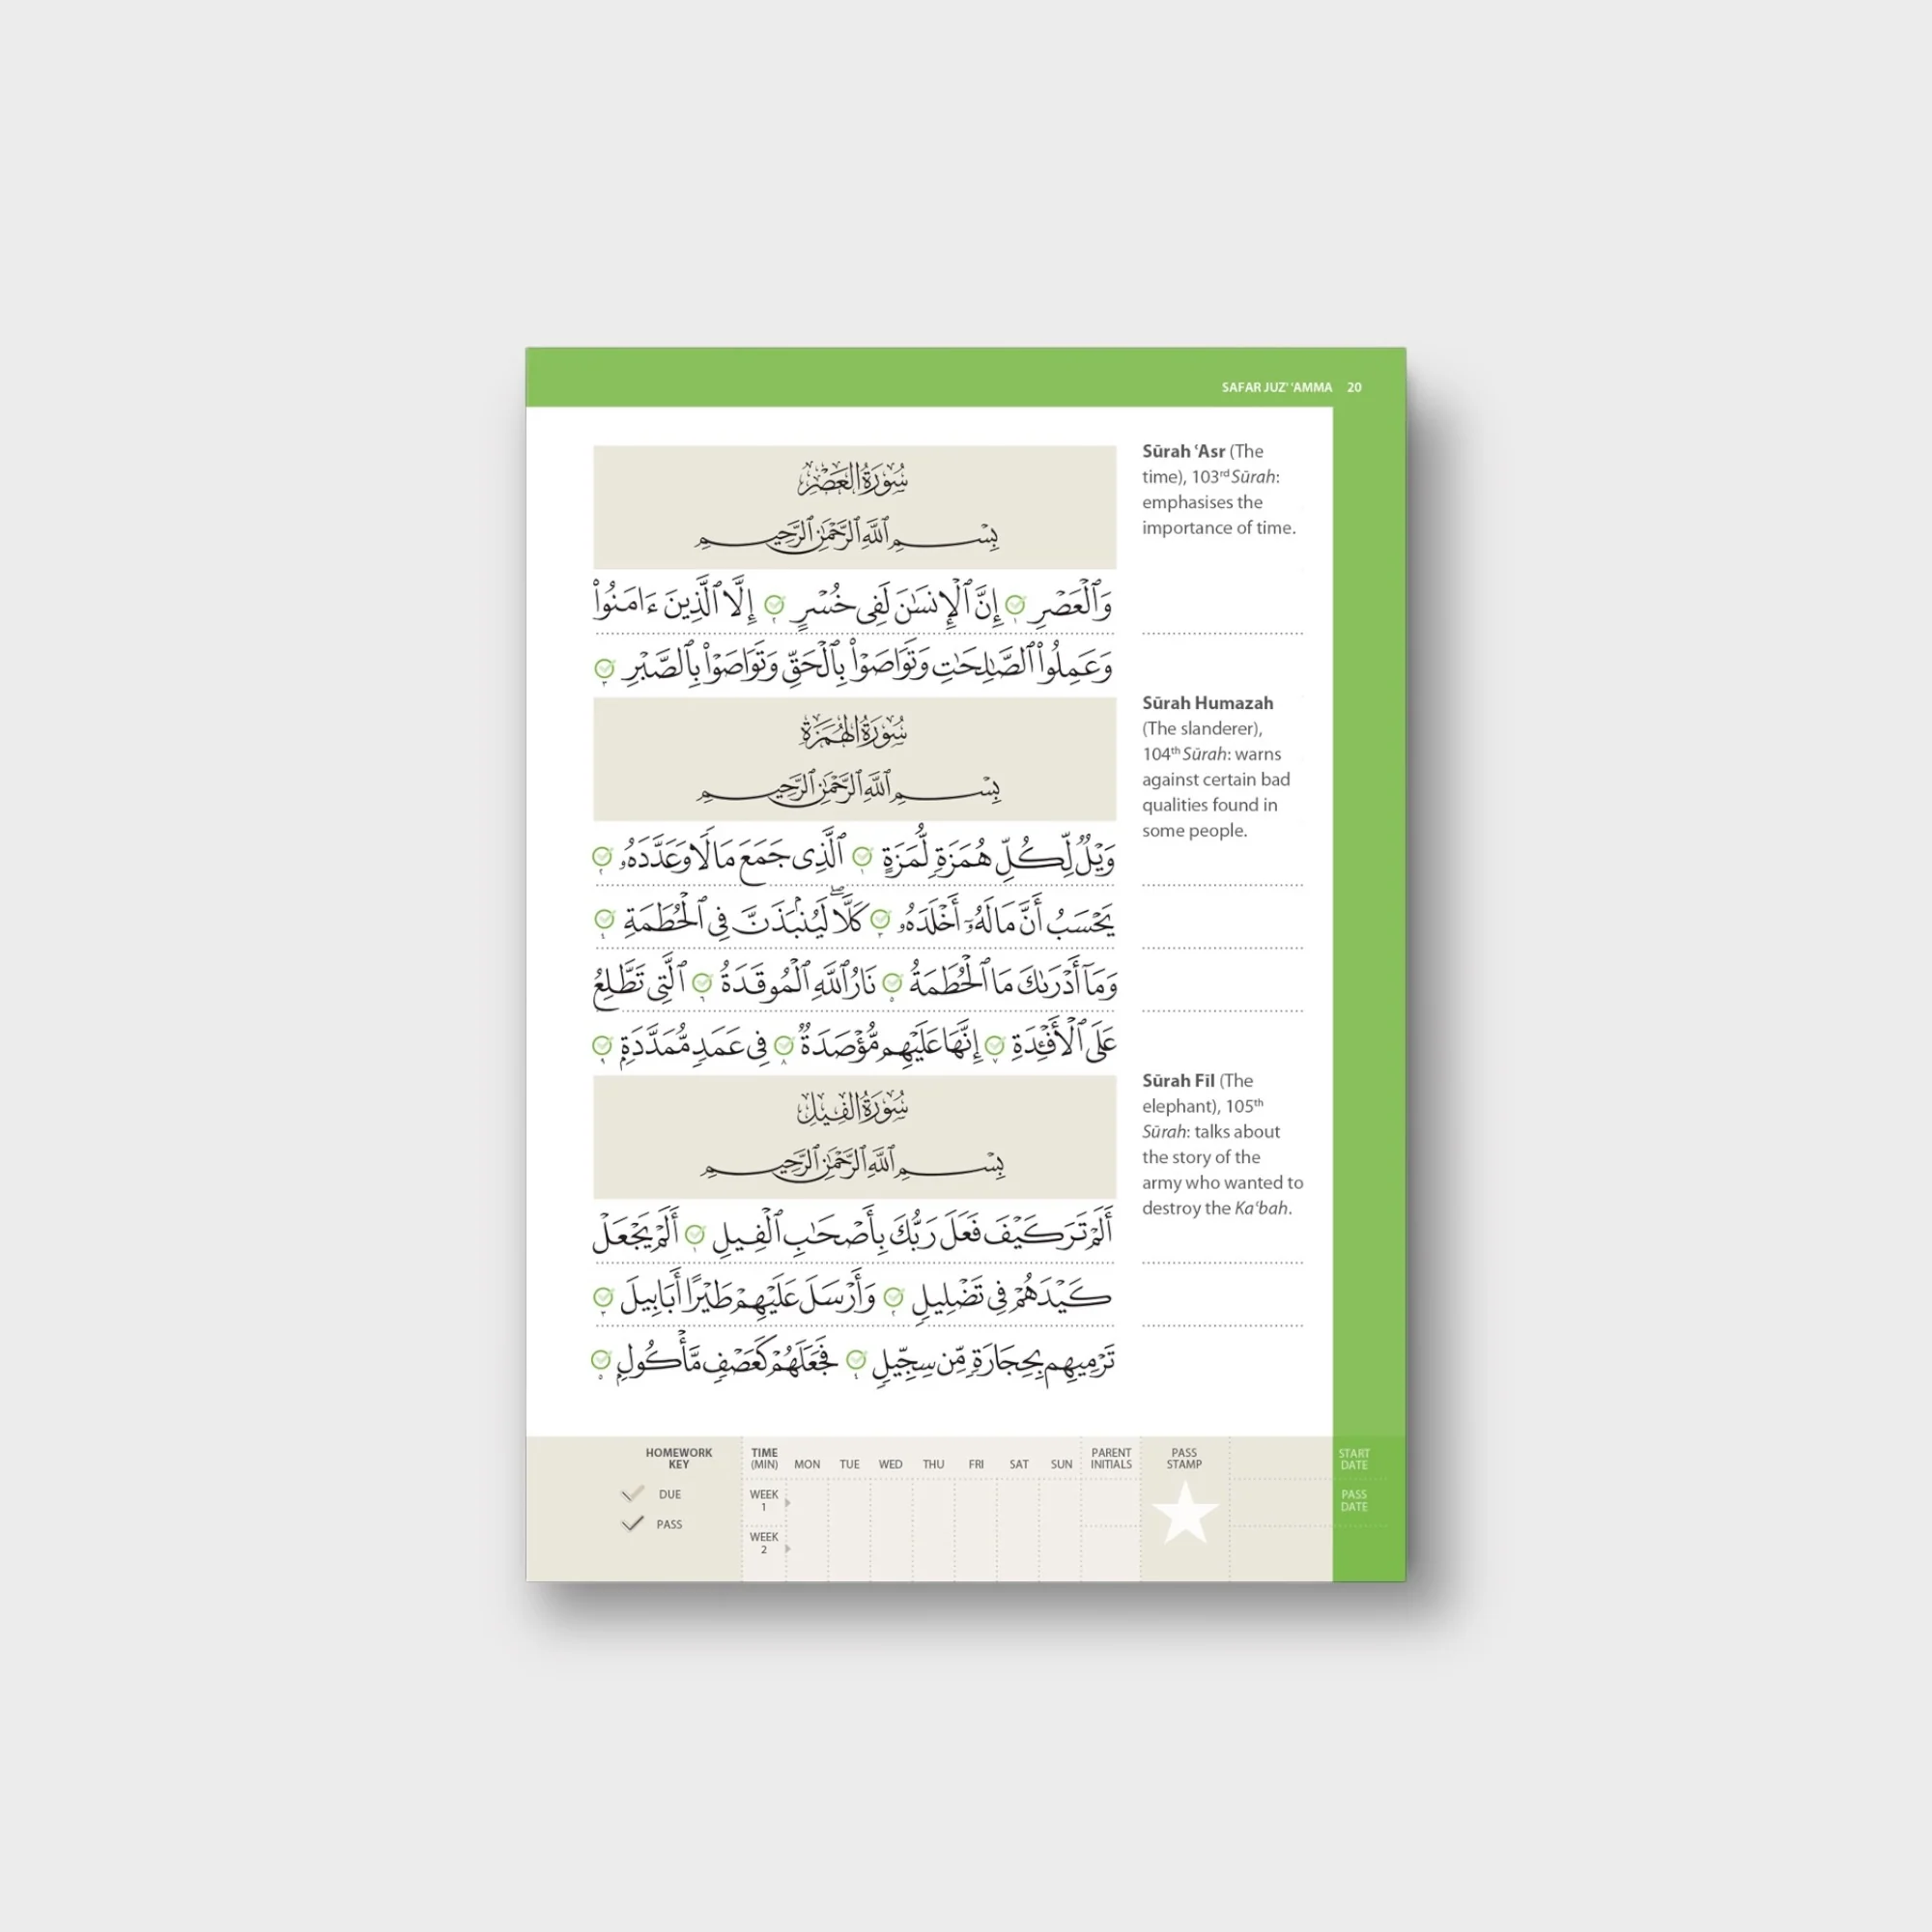 SAFAR JUZ' 'AMMA 20
سُورَةُ العَصْرِ
بِسْمِ ٱللَّهِ ٱلرَّحْمَٰنِ ٱلرَّحِيمِ
وَٱلْعَصْرِ ١ إِنَّ ٱلْإِنسَٰنَ لَفِى خُسْرٍ ٢ إِلَّا ٱلَّذِينَ ءَامَنُوا۟
وَعَمِلُوا۟ ٱلصَّٰلِحَٰتِ وَتَوَاصَوْا۟ بِٱلْحَقِّ وَتَوَاصَوْا۟ بِٱلصَّبْرِ ٣
Sūrah ʿAsr (The
time), 103rd Sūrah:
emphasises the
importance of time.
سُورَةُ الهُمَزَةِ
بِسْمِ ٱللَّهِ ٱلرَّحْمَٰنِ ٱلرَّحِيمِ
وَيْلٌ لِّكُلِّ هُمَزَةٍ لُّمَزَةٍ ١ ٱلَّذِى جَمَعَ مَالًا وَعَدَّدَهُۥ ٢
يَحْسَبُ أَنَّ مَالَهُۥٓ أَخْلَدَهُۥ ٣ كَلَّا ۖ لَيُنۢبَذَنَّ فِى ٱلْحُطَمَةِ ٤
وَمَآ أَدْرَىٰكَ مَا ٱلْحُطَمَةُ ٥ نَارُ ٱللَّهِ ٱلْمُوقَدَةُ ٦ ٱلَّتِى تَطَّلِعُ
عَلَى ٱلْأَفْـِٔدَةِ ٧ إِنَّهَا عَلَيْهِم مُّؤْصَدَةٌ ٨ فِى عَمَدٍ مُّمَدَّدَةٍۭ ٩
Sūrah Humazah
(The slanderer),
104th Sūrah: warns
against certain bad
qualities found in
some people.
سُورَةُ الفِيلِ
بِسْمِ ٱللَّهِ ٱلرَّحْمَٰنِ ٱلرَّحِيمِ
أَلَمْ تَرَ كَيْفَ فَعَلَ رَبُّكَ بِأَصْحَٰبِ ٱلْفِيلِ ١ أَلَمْ يَجْعَلْ
كَيْدَهُمْ فِى تَضْلِيلٍ ٢ وَأَرْسَلَ عَلَيْهِمْ طَيْرًا أَبَابِيلَ ٣
تَرْمِيهِم بِحِجَارَةٍ مِّن سِجِّيلٍ ٤ فَجَعَلَهُمْ كَعَصْفٍ مَّأْكُولٍۭ ٥
Sūrah Fīl (The
elephant), 105th
Sūrah: talks about
the story of the
army who wanted to
destroy the Kaʿbah.
HOMEWORK
KEY
DUE
PASS
TIME
(MIN) MON TUE WED THU FRI SAT SUN
PARENT
INITIALS
PASS
STAMP
START
DATE
WEEK
1
WEEK
2
PASS
DATE